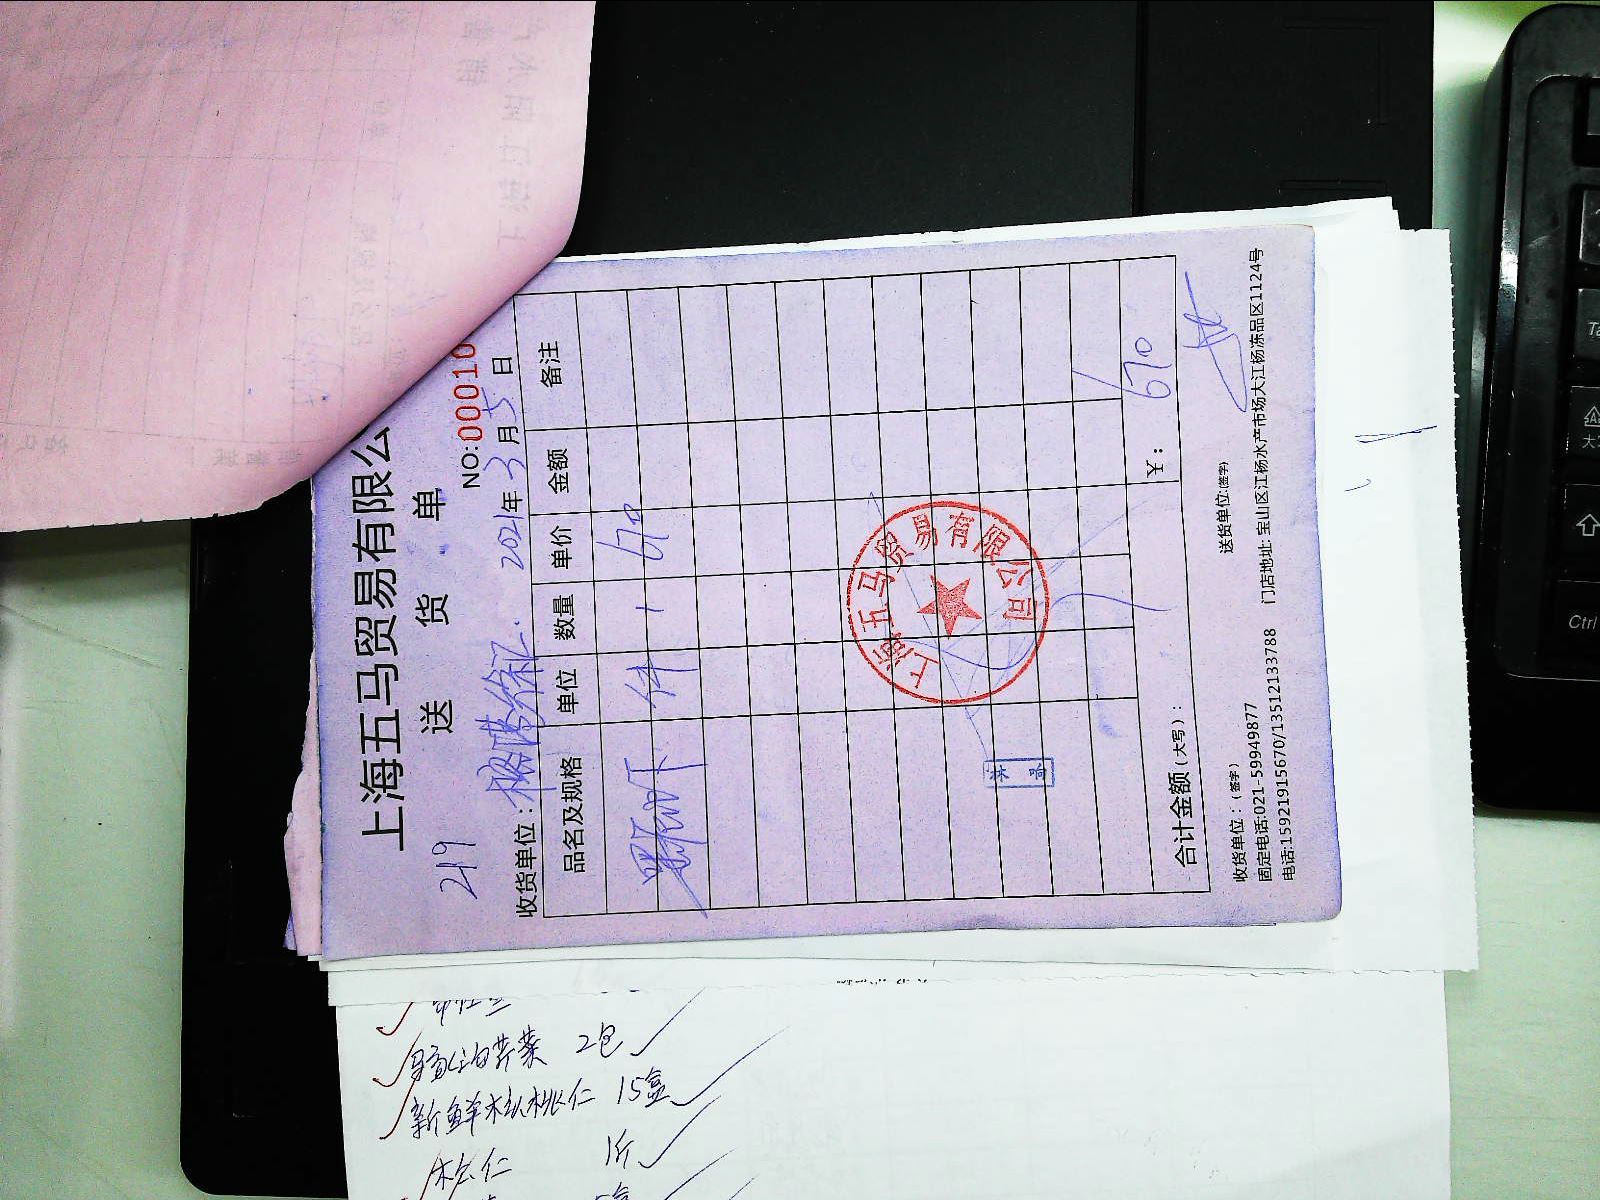 上海五马贸易有限公
送 货 单
219
NO:00010
收货单位: 2021年3月5日
品名及规格 单位 数量 单价 金额 备注
件 1 670
合计金额(大写): ¥: 670
收货单位:(签字) 送货单位:(签字)
固定电话:021-59949877 门店地址: 宝山区江杨水产市场大江杨冻品区1124号
电话:15921915670/13512133788
上海五马贸易有限公司
2包
新鲜核桃仁 15盒
松仁 1斤
Ctrl